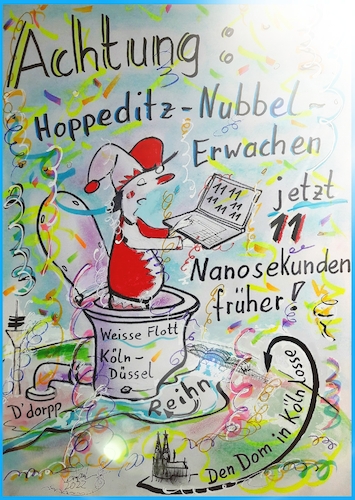 Achtung:
Hoppeditz-Nubbel-
Erwachen
jetzt
11
Nanosekunden
früher!
11 11
11 11 11
11 11 11
Weisse Flott
Köln-
Düssel
D'dorpp
Reihn
Den Dom in Köln lasse